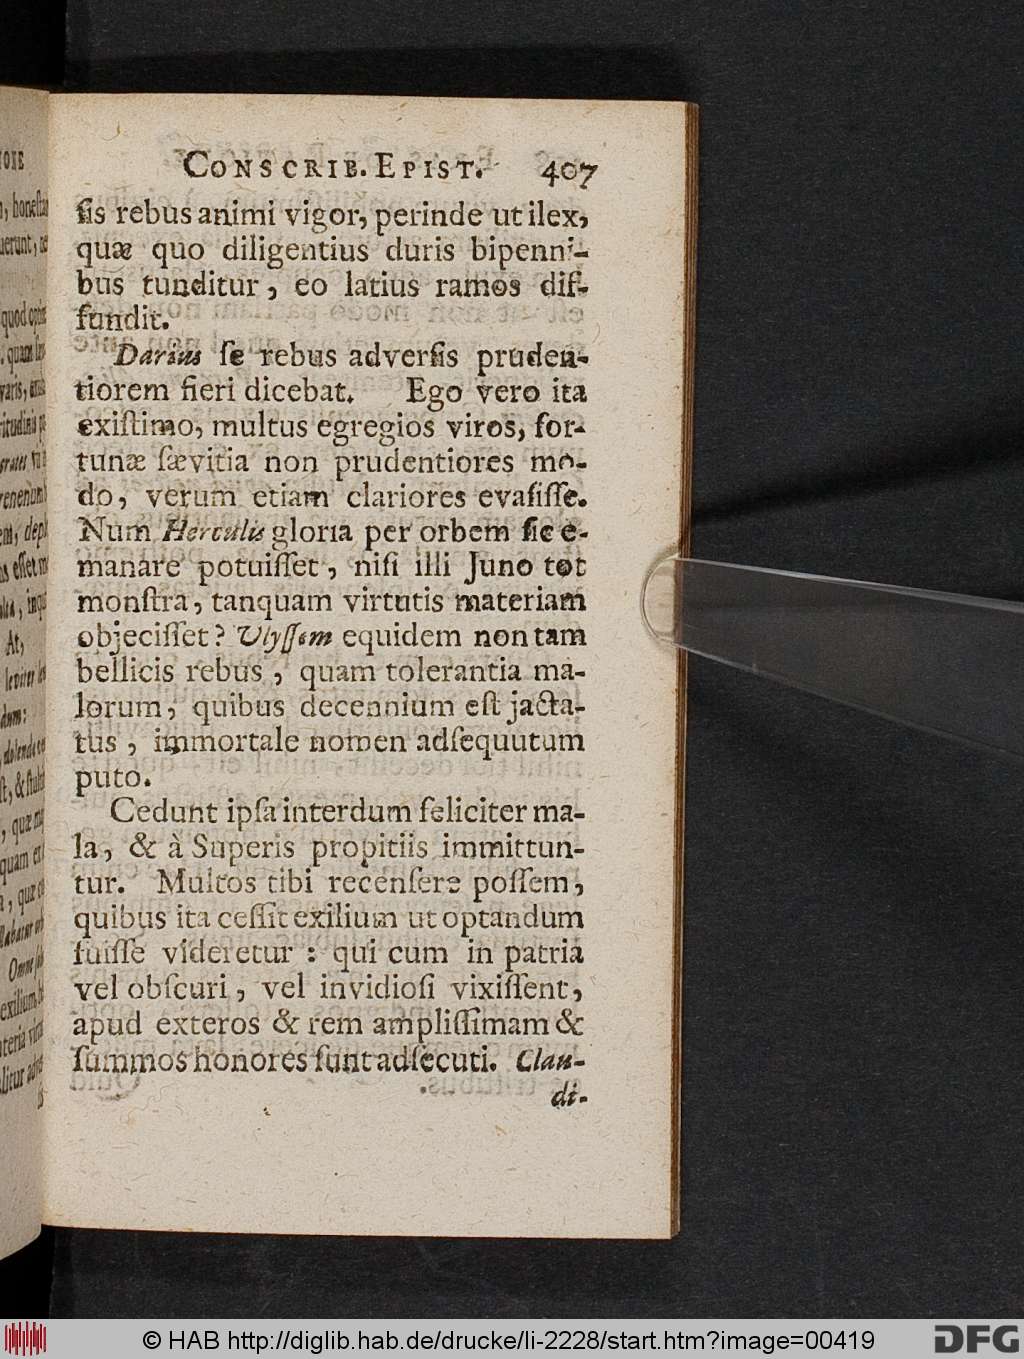 CONSCRIB. EPIST. 407
ſis rebus animi vigor, perinde ut ilex,
quæ quo diligentius duris bipenni-
bus tunditur, eo latius ramos dif-
fundit.
Darius ſe rebus adverſis pruden-
tiorem fieri dicebat. Ego vero ita
exiſtimo, multus egregios viros, for-
tunæ ſævitia non prudentiores mo-
do, verum etiam clariores evaſiſſe.
Num Herculis gloria per orbem ſic e-
manare potuiſſet, niſi illi Juno tot
monſtra, tanquam virtutis materiam
objeciſſet? Ulyſſem equidem non tam
bellicis rebus, quam tolerantia ma-
lorum, quibus decennium eſt jacta-
tus, immortale nomen adſequutum
puto.
Cedunt ipſa interdum feliciter ma-
la, & à Superis propitiis immittun-
tur. Multos tibi recenſere poſſem,
quibus ita ceſſit exilium ut optandum
fuiſſe videretur: qui cum in patria
vel obſcuri, vel invidioſi vixiſſent,
apud exteros & rem ampliſſimam &
ſummos honores ſunt adſecuti. Clau-
di-
© HAB http://diglib.hab.de/drucke/li-2228/start.htm?image=00419
DFG